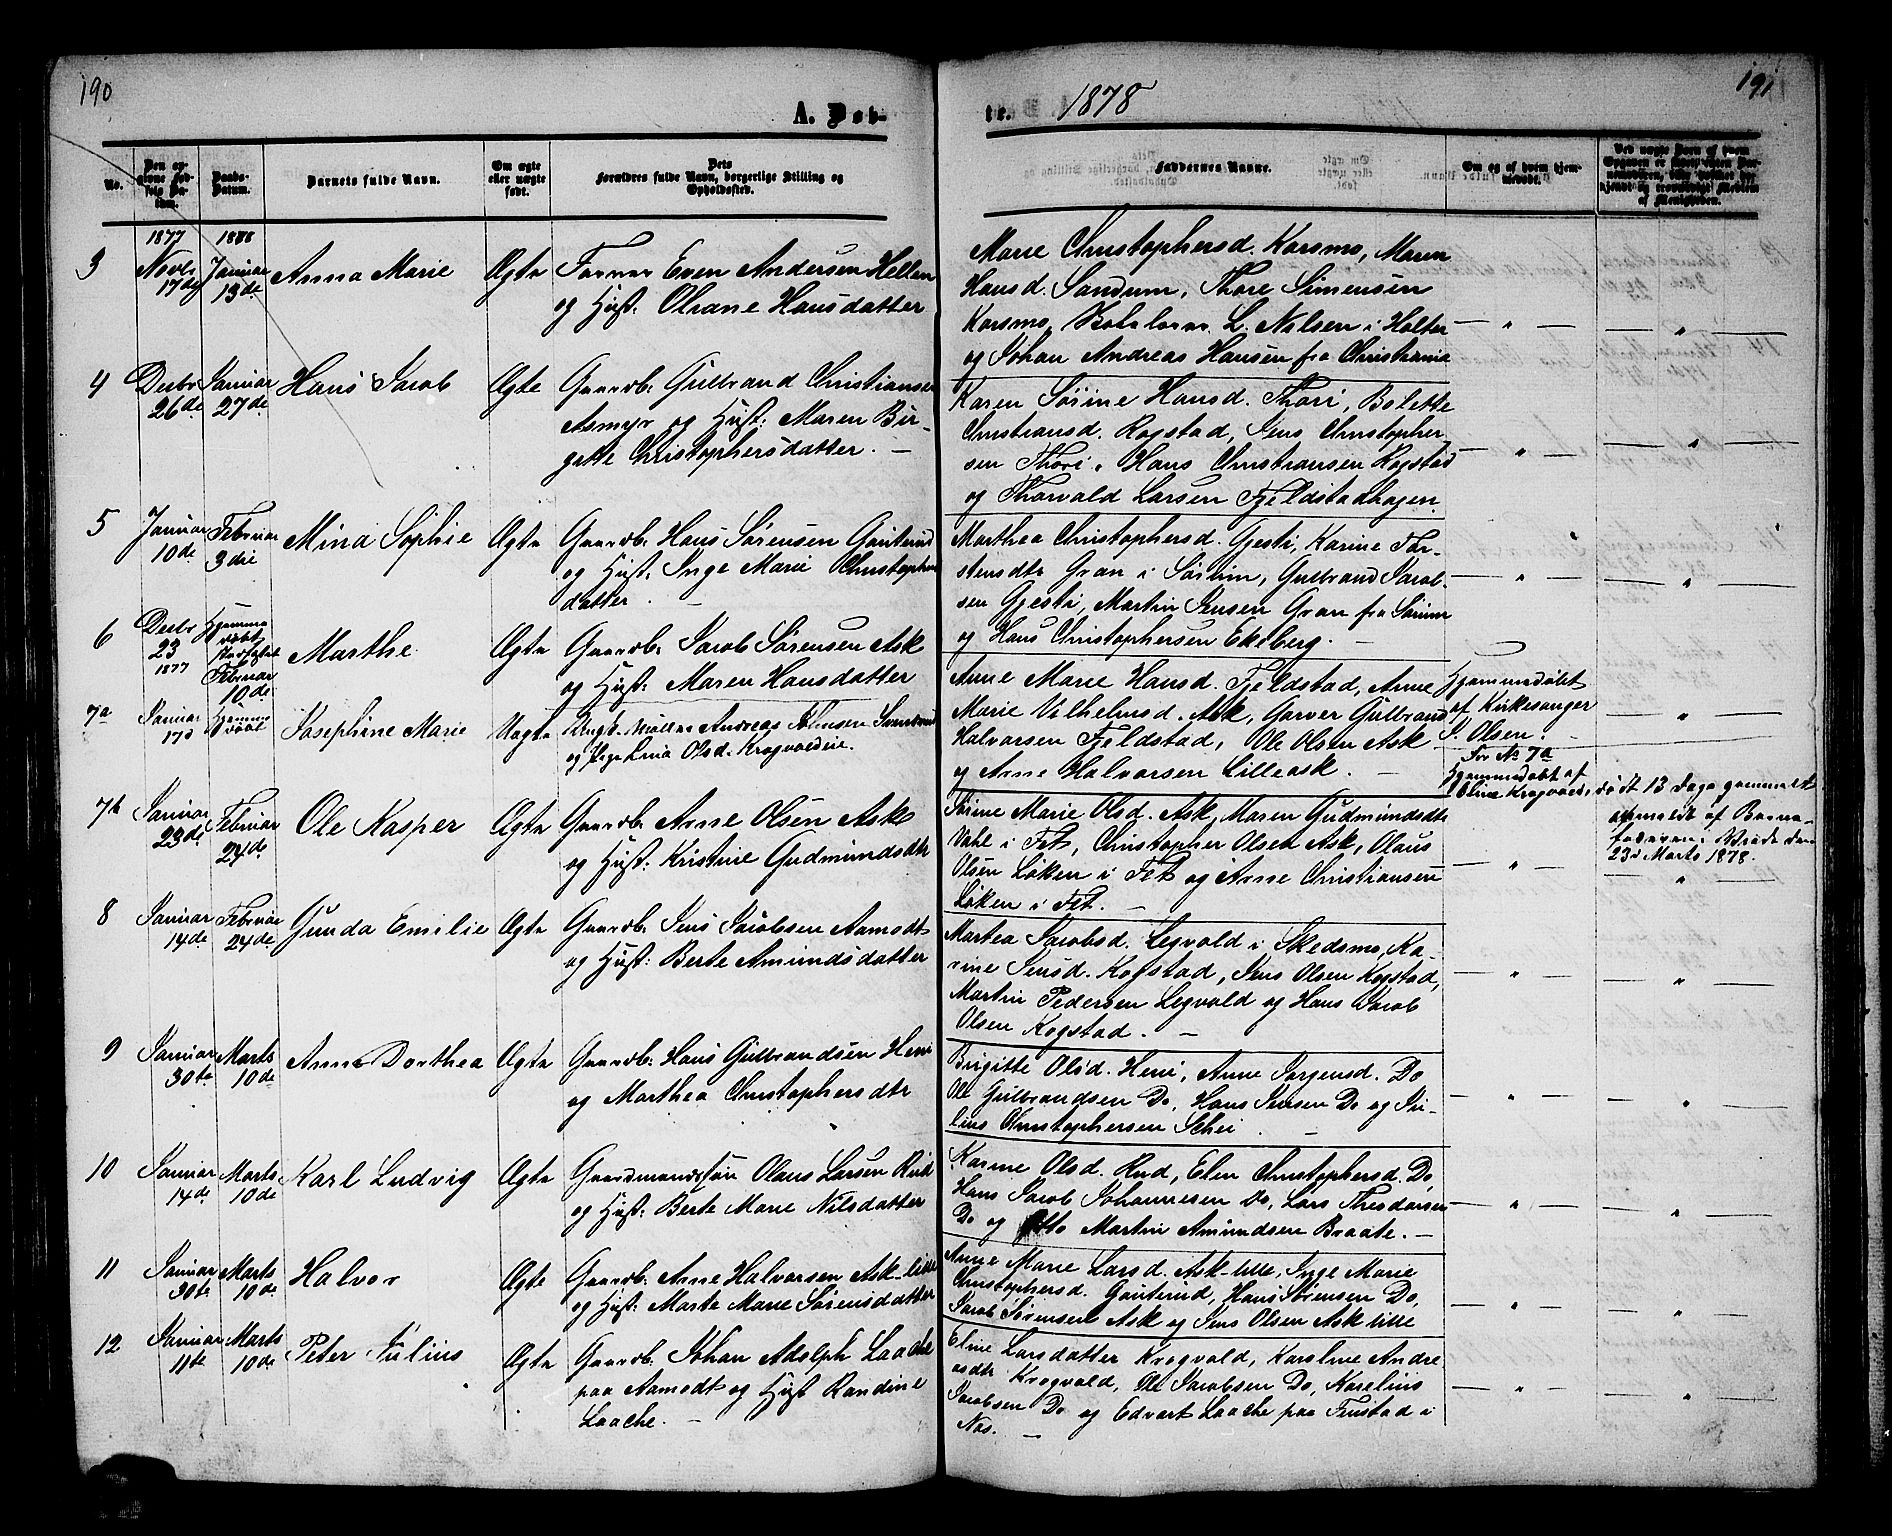 190
A. Døb-
No.
Den opgivne Fødsels Datum.
Daabs-Datum.
Barnets fulde Navn.
Om ægte eller uægte født.
Dets Forældres fulde Navn, borgerlige Stilling og Opholdssted.
1877 1878
3 Novbr 17de Januar 13de Anna Marie Ægte Forner Even Andersen Hellen
og Hust: Oliane Hansdatter
4 Decbr 26de Januar 27de Hans Jacob Ægte Gaardb: Gulbrand Christiansen
Asmyr og Hust: Maren Bir-
gitte Christophersdatter. —
5 Januar 10de Februar 3die Mina Sophie Ægte Gaardb. Hans Sørensen Gauterud
og Hust. Inge Marie Christophers
datter. —
6 Decbr 23 1877 Hjemme døbt Februar 10de Marthe Ægte Gaardb. Jacob Sørensen Ask
og Hust: Maren Hansdatter
7a Januar 17d Hjemme døbt Josephine Marie Uægte Ungk. Møller Andreas
og Pige Lina Olsd. Krogvoldeie.
7b Januar 23de Februar 24de Ole Kasper Ægte Gaardb: Arne Olsen Ask
og Hust: Kristine Gudmundsdtr
8 Januar 14de Februar 24de Gunda Emilie Ægte Gaardb. Jens Jacobsen Aamodt
og Hust: Berte Amundsdatter
9 Januar 30te Marts 10de Anne Dorthea Ægte Gaardb: Hans Gulbrandsen Heni
og Marthea Christophersdtr
10 Januar 14de Marts 10de Karl Ludvig Ægte Gaardmandssøn Olaus Larsen Rud
og Hust: Berte Marie Nilsdatter
11 Januar 30te Marts 10de Halvor Ægte Gaardb: Arne Halvorsen Ask-lille
og Hust: Marte Marie Sørensdatter
12 Januar 11te Marts 10de Peter Julius Ægte Gaardb. Johan Adolph Laache
paa Aamodt og Hust Randine
Laache. —
te. 1878
191
Faddernes Navne.
Om og af hvem hjemmedøbt.
Marie Christophersd. Korsmo, Maren
Hansd. Sandum, Thore Simensen
Korsmo, L. Nilsen i Holter
og Johan Andreas Hansen fra Christiania
Karen Sørine Hansd. Thori, Bolette
Christiansd. Rogstad, Jens Christopher-
sen Thori, Hans Christiansen Rogstad
og Thorvald Larsen Fjeldstadhagen.
Marthea Christophersd. Gjesti, Karine Tor-
stensdtr Gran i Sørum, Gulbrand Jacob-
sen Gjesti, Martin Jensen Gran fra Sørum
og Hans Christophersen Ekeberg. —
Anne Marie Hansd. Fjeldstad, Anne
Marie Vilhelmsd. Ask, Garver Gulbrand
Halvorsen Fjeldstad, Ole Olsen Ask
og Arne Halvorsen Lilleask. —
Hjemmedøbt
af Kirkesanger
P. Olsen.
For No 7a
Hjemmedøbt af
Eline Krogvold, død 13 Dage gammelt
anmeldt af Barne-
faderen i Brede den
23d Marts 1878.
Sørine Marie Olsd. Ask, Maren Gudmundsdtr
Vahl i Fet, Christopher Olsen Ask, Olaus
Olsen Løken i Fet og Arne Christiansen
Løken i Fet. —
Martea Jacobsd. Legvold i Skedsmo, Ka-
rine Jensd. Kogstad, Jens Olsen Kogstad,
Martin Pedersen Legvold og Hans Jacob
Olsen Kogstad. —
Birgitte Olsd. Heni, Anne Jørgensd. Do
Ole Gulbrandsen Do, Hans Jensen Do og Ju-
lius Christophersen Schei. —
Karine Olsd. Rud, Elen Christophersd. Do,
Hans Jacob Johannesen Do, Lars Theodorsen
Do og Otto Martin Amundsen Braate. —
Anne Marie Larsd. Ask-lille, Inge Marie
Christophersd. Gauterud, Hans Sørensen Do,
Jacob Sørensen Ask og Jens Olsen Ask lille
Eline Larsdatter Krogvold, Karoline Andre-
asdtr Krogvold, Ole Jacobsen Do, Karelius
Jacobsen Do og Edvart Laache paa Finstad i
Næs. —